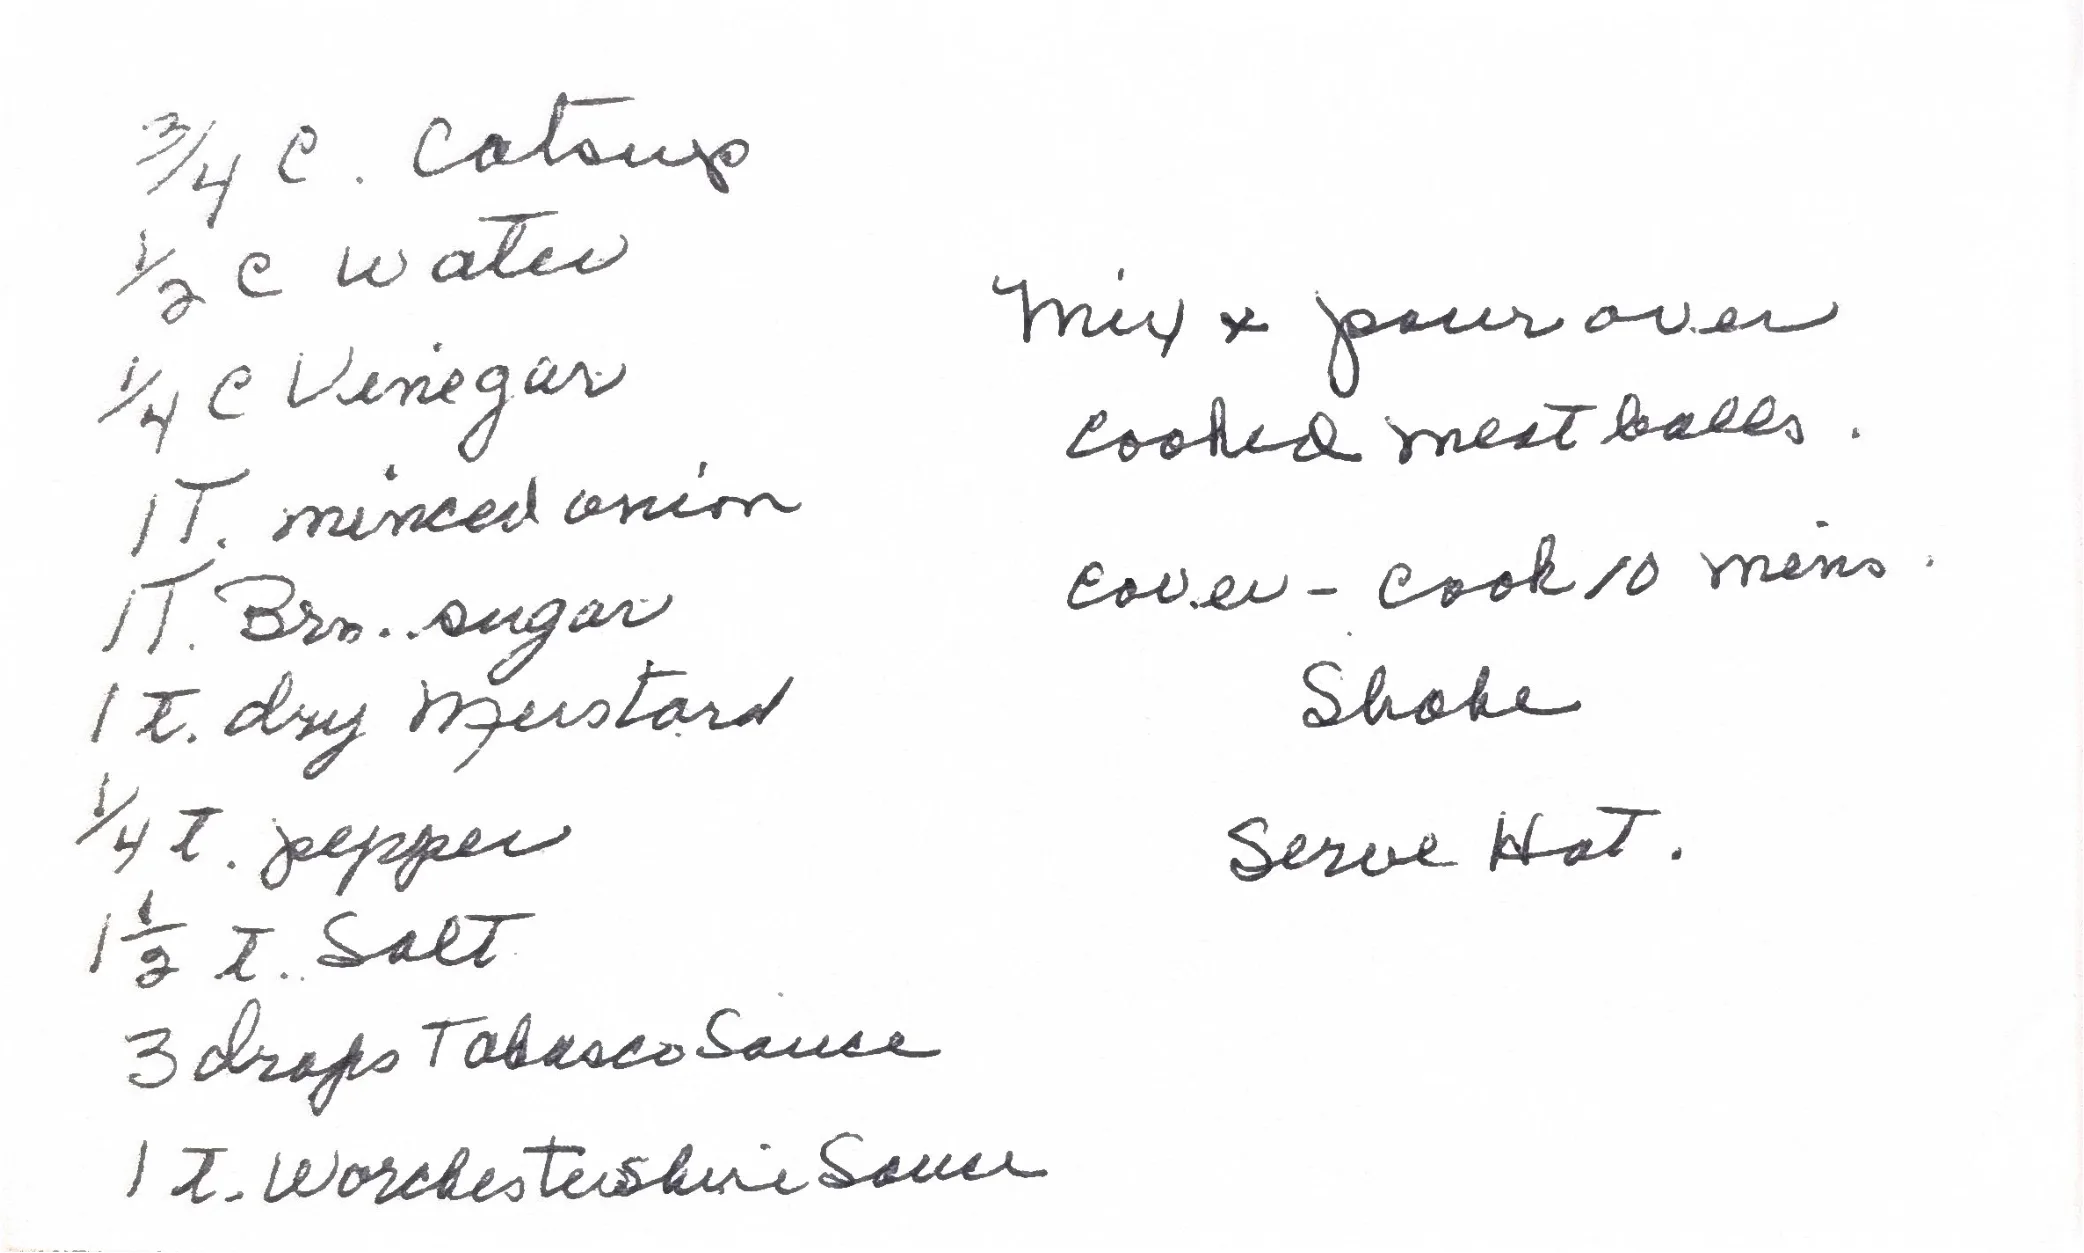 3/4 C. Catsup
1/2 C Water
1/4 C Vinegar
1 T. minced onion
1 T. Brn. sugar
1 t. dry Mustard
1/4 t. pepper
1 1/2 t. Salt
3 drops Tabasco Sauce
1 t. Worchestershire Sauce
Mix & pour over
cooked meat balls.
cover - cook 10 mins.
Shake
Serve Hot.